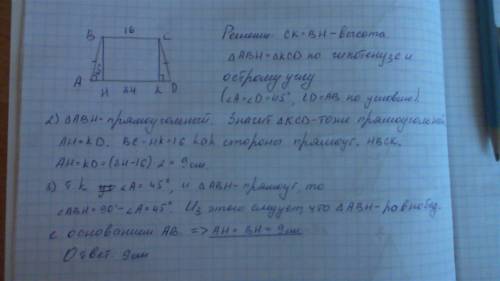 16
B C
A H 24 K D
Решение: CK=BH-высота.
△ABH=△KCD по гипотенузе и
острому углу
(∠A=∠D=45°, CD=AB по условию).
2) △ABH-прямоугольный. Значит △KCD-тоже прямоугольный
AH=KD. BC=HK=16 как стороны прямоуг. HBCK.
AH=KD=(24-16) 2 = 9см.
3) т.к ∠A=45°, и △ABH-прямоуг, то
∠ABH=90°-∠A=45°. Из этого следует что △ABH-равнобед.
с основанием AB. => AH=BH=9см
Ответ 9см